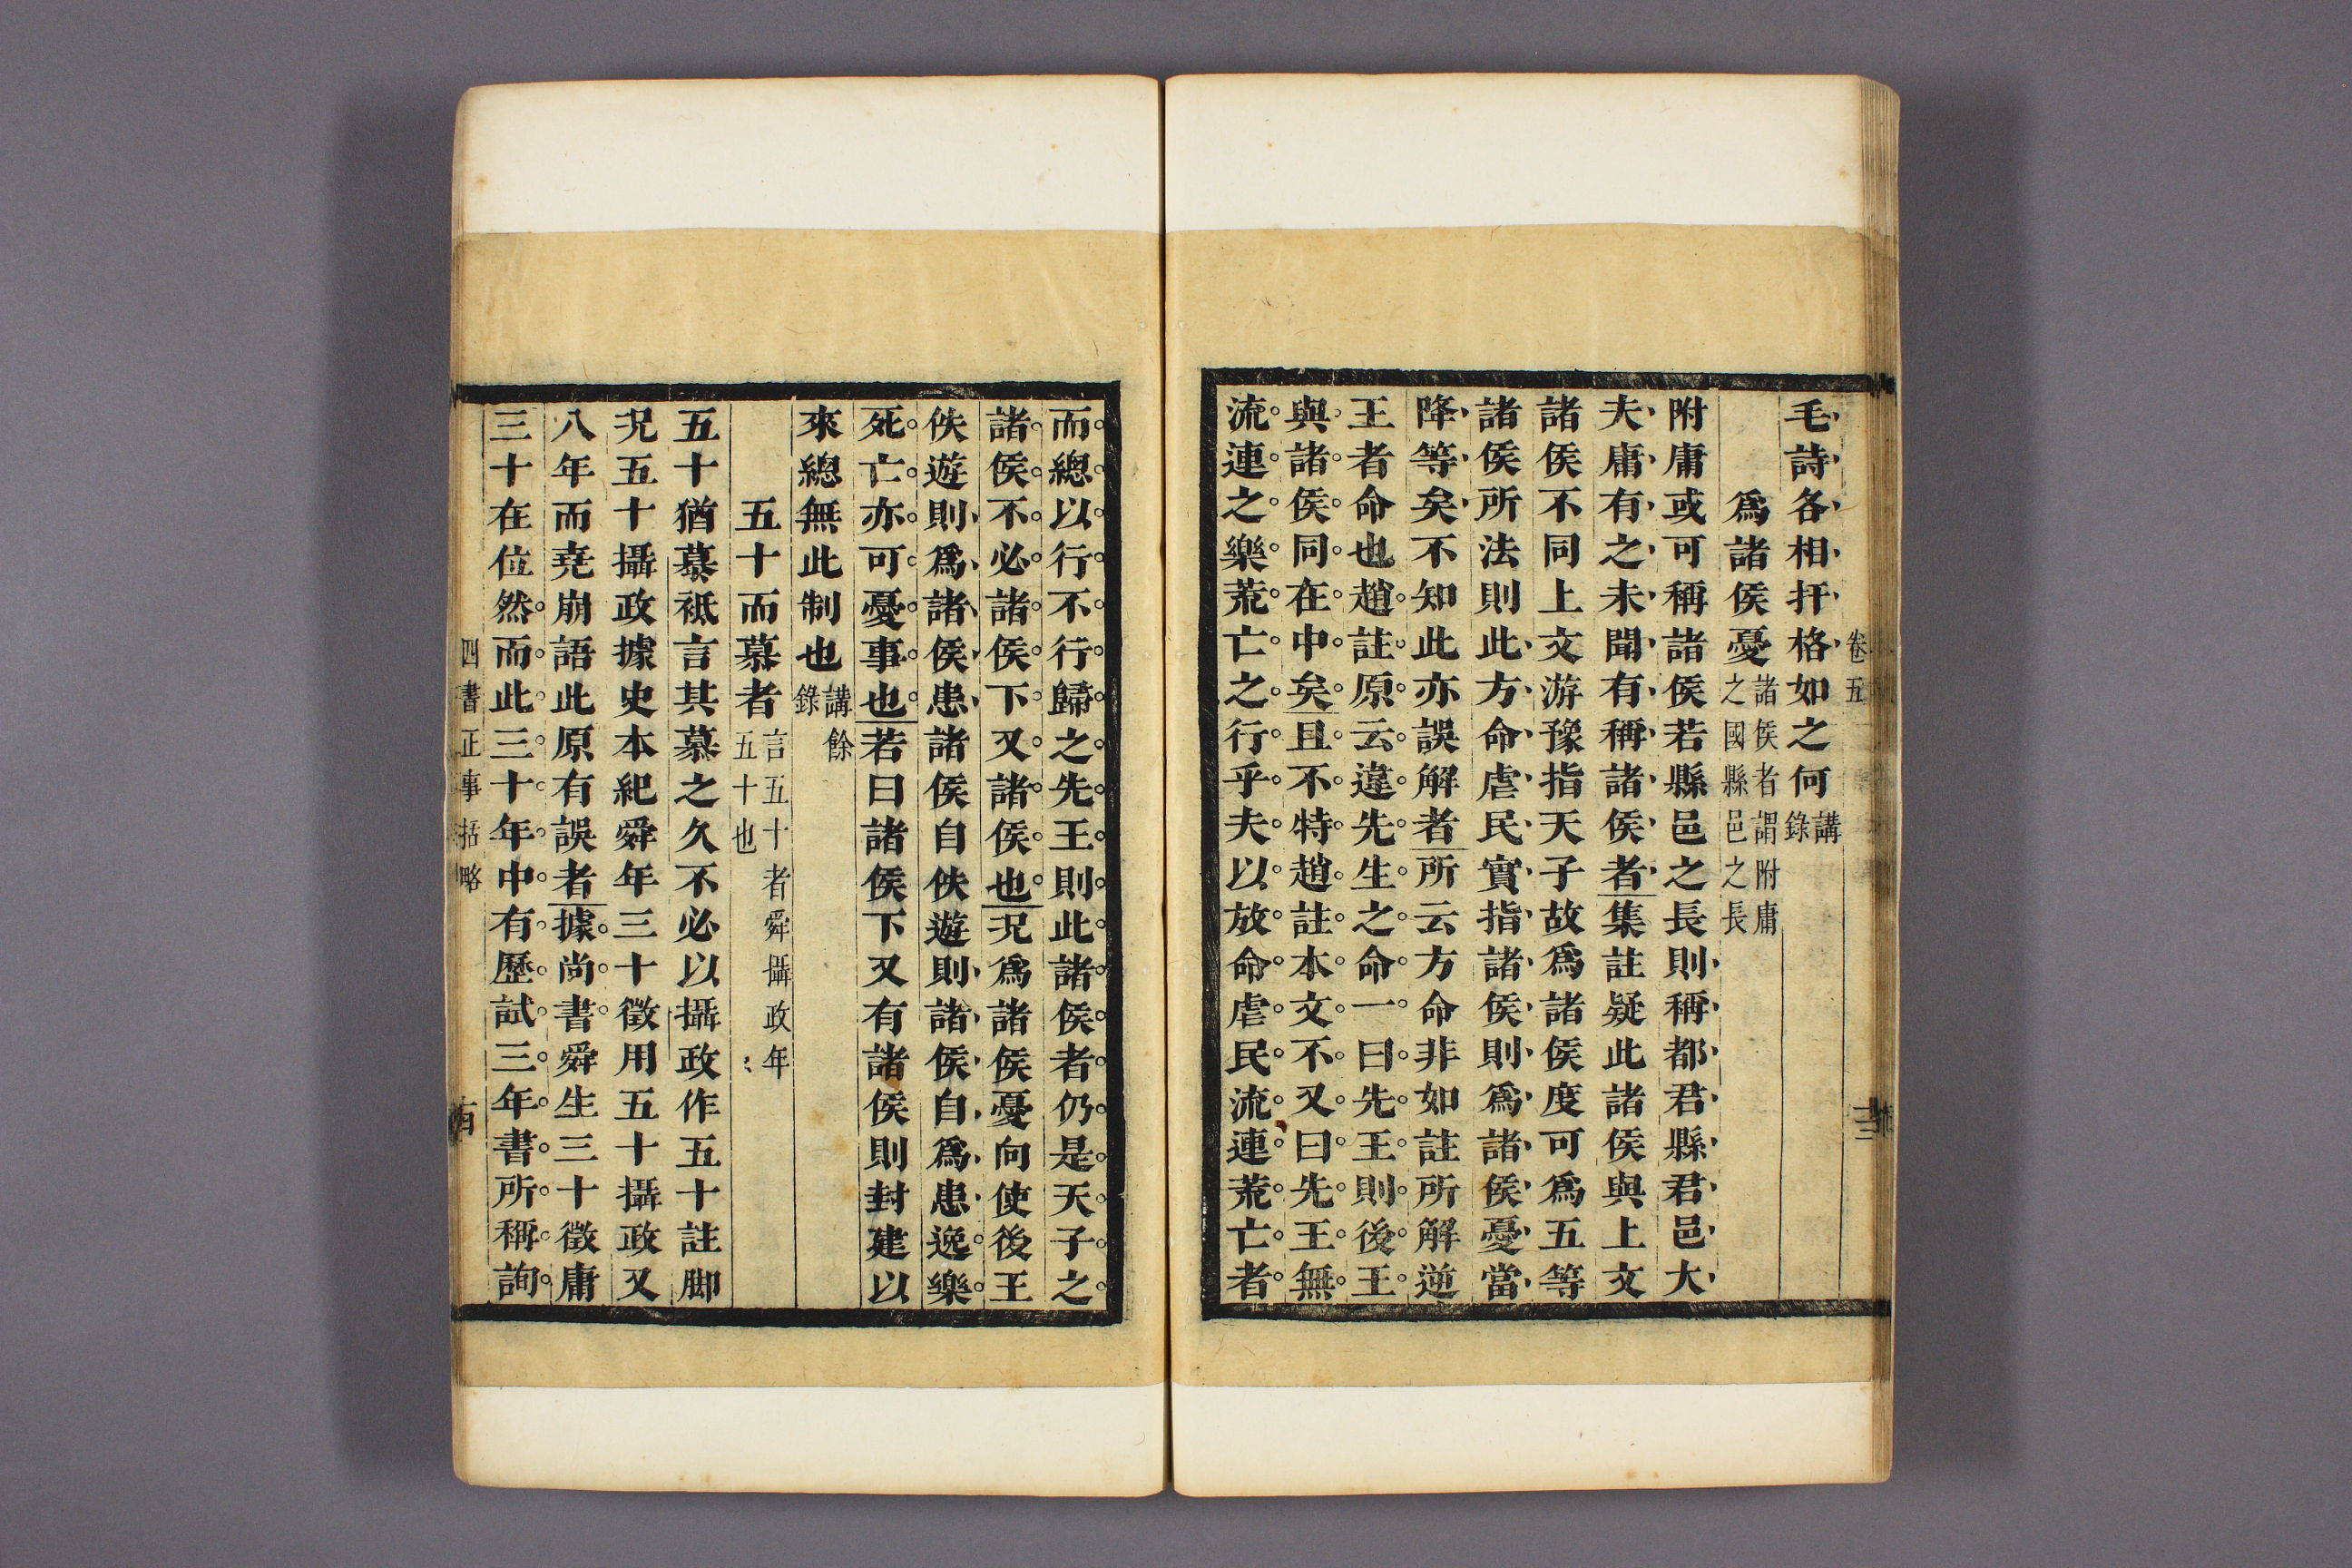 卷五
毛詩各相扞格如之何講錄
爲諸侯憂諸侯者謂附庸之國縣邑之長
附庸或可稱諸侯若縣邑之長則稱都君縣君邑大
夫庸有之未聞有稱諸侯者集註疑此諸侯與上文
諸侯不同上文游豫指天子故爲諸侯度可爲五等
諸侯所法則此方命虐民實指諸侯則爲諸侯憂當
降等矣不知此亦誤解者所云方命非如註所解逆
王者命也趙註原云違先生之命一曰先王則後王
與諸侯同在中矣且不特趙註本文不又曰先王無
流連之樂荒亡之行乎夫以放命虐民流連荒亡者
而總以行不行歸之先王則此諸侯者仍是天子之
諸侯不必諸侯下又諸侯也況爲諸侯憂向使後王
佚遊則爲諸侯患諸侯自佚遊則諸侯自爲患逸樂
死亡亦可憂事也若曰諸侯下又有諸侯則封建以
來總無此制也講餘錄
五十而慕者言五十者舜攝政年五十也
五十猶慕祇言其慕之久不必以攝政作五十註脚
況五十攝政據史本紀舜年三十徵用五十攝政又
八年而堯崩語此原有誤者據尚書舜生三十徵庸
三十在位然而此三十年中有歷試三年書所稱詢
四書正事括略